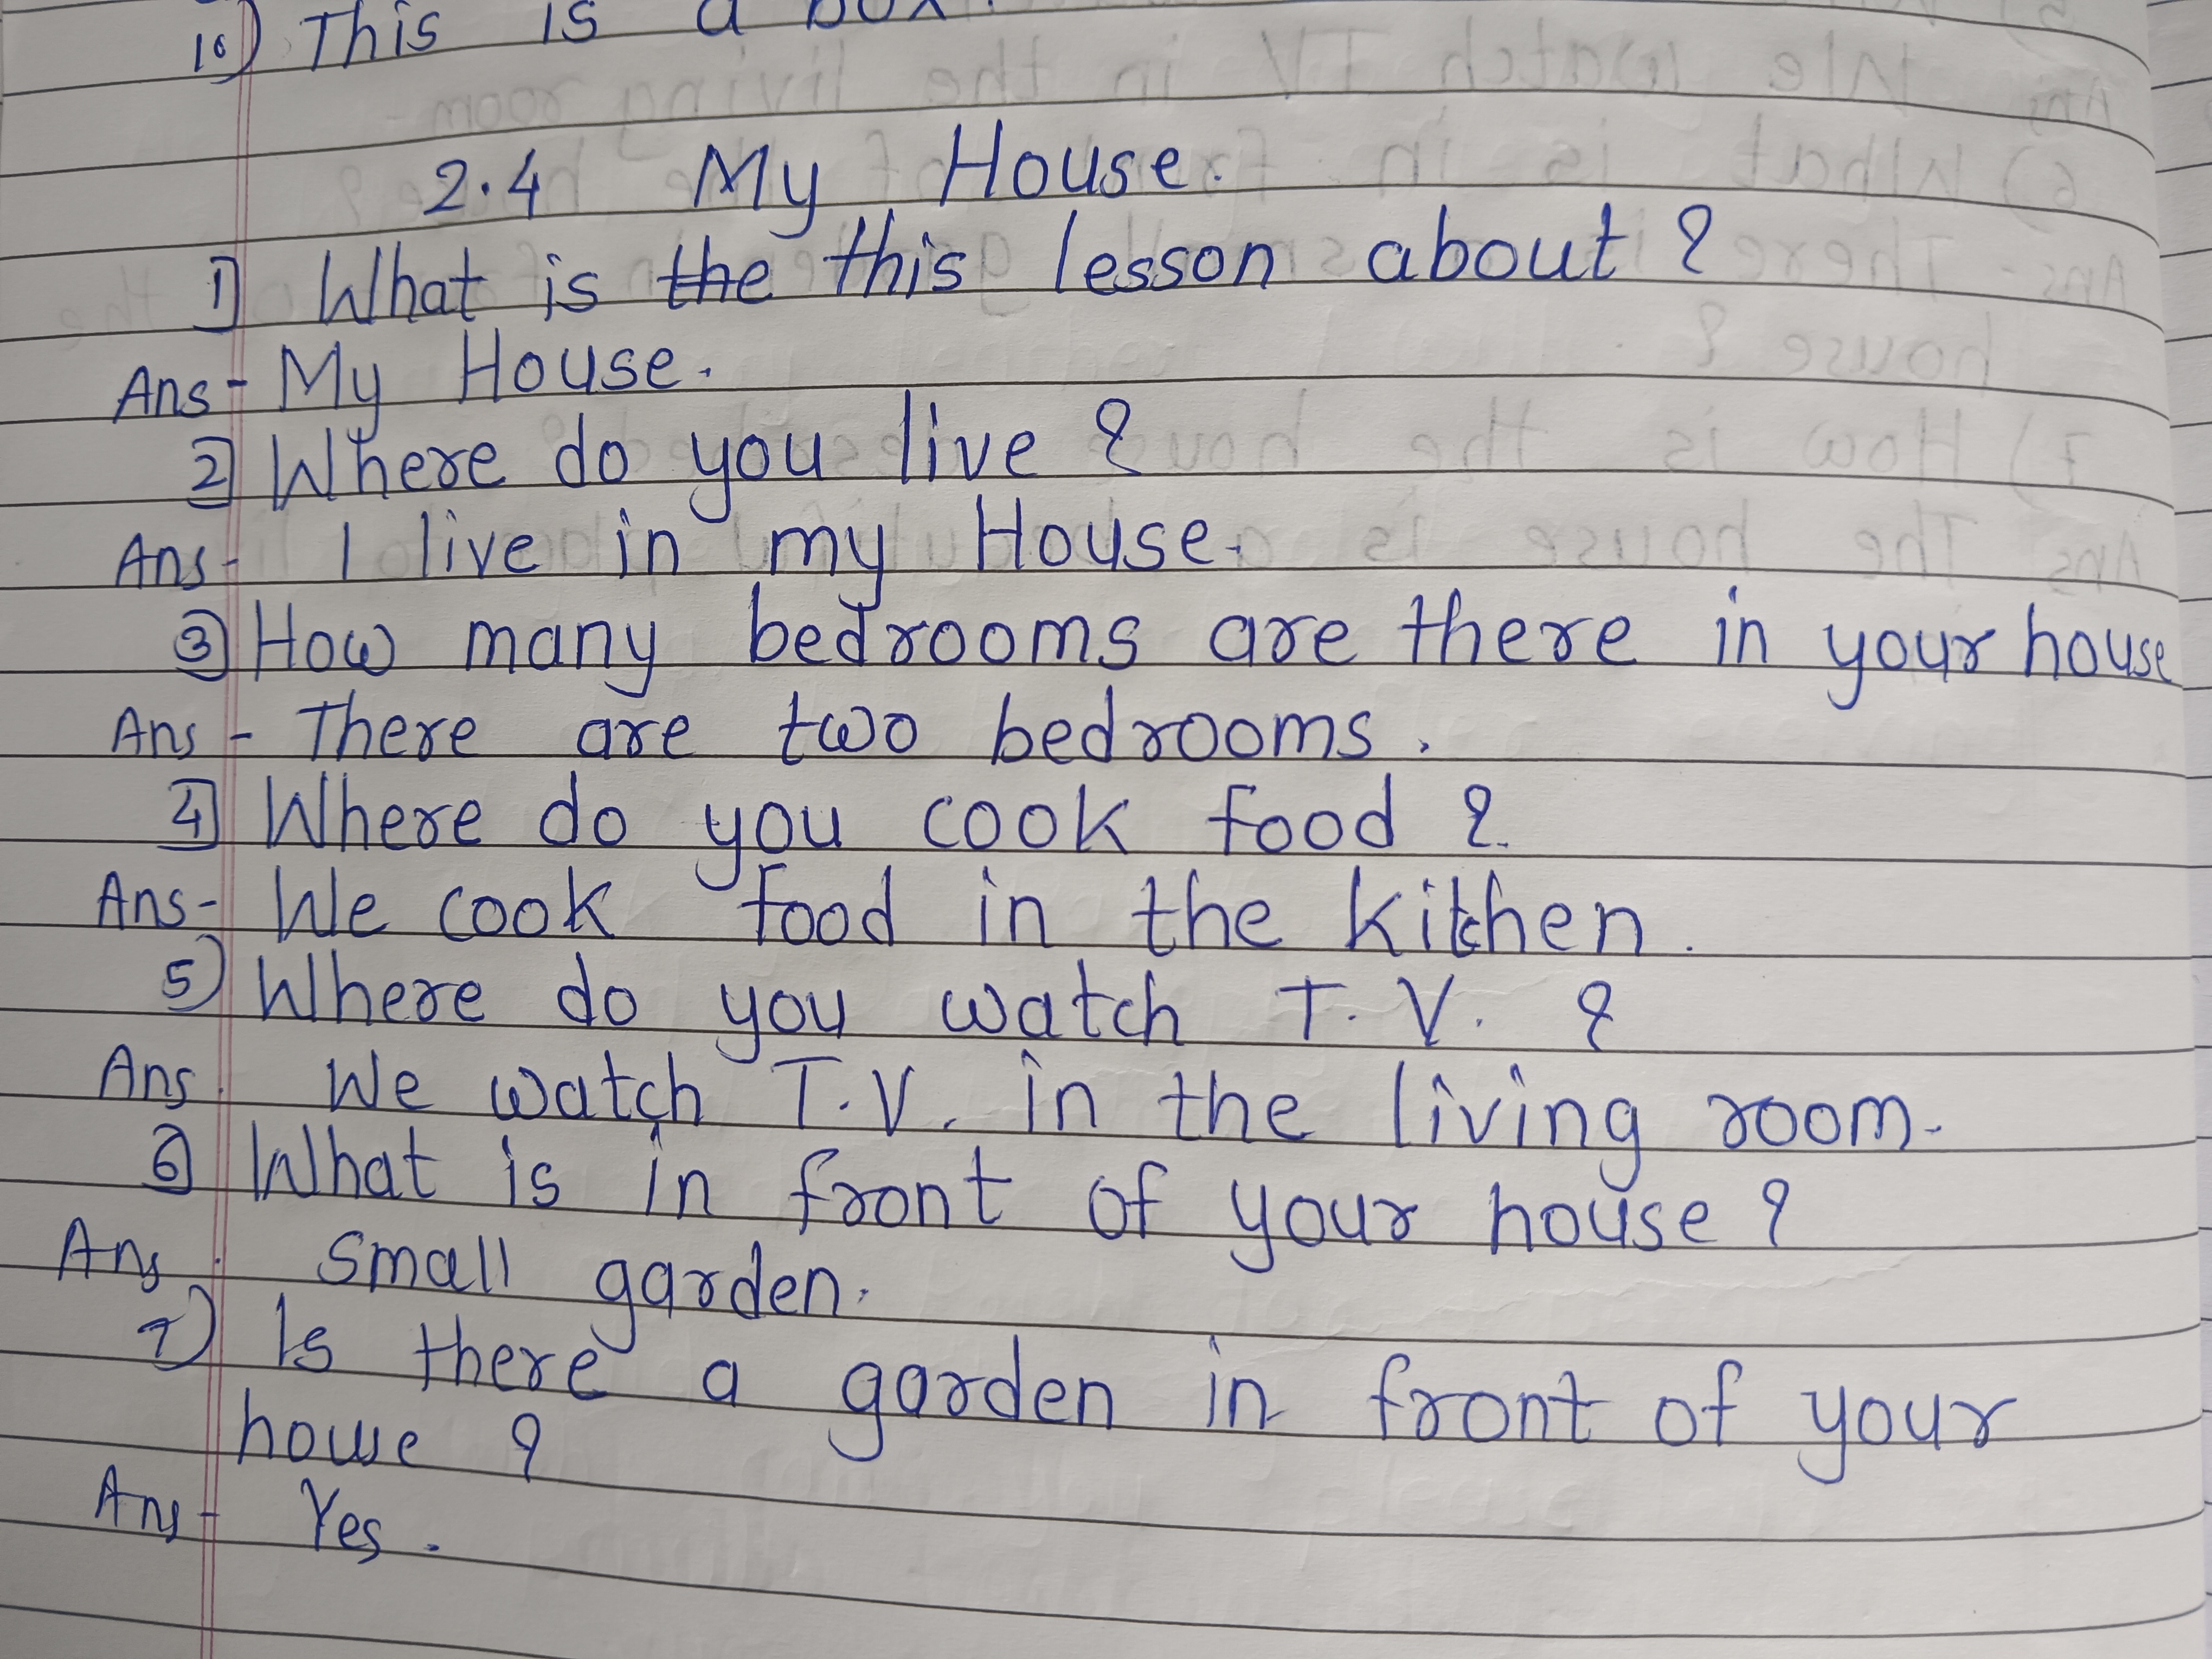 10) This is a box.
2.4 My House.
1] What is the this lesson about ?
Ans - My House.
2] Where do you live ?
Ans - I live in my House.
3) How many bedrooms are there in your house
Ans - There are two bedrooms.
4] Where do you cook food ?
Ans - We cook food in the kitchen.
5) Where do you watch T.V. ?
Ans. We watch T.V. in the living room.
6] What is in front of your house ?
Ans. Small garden.
7) Is there a garden in front of your
house ?
Ans - Yes.